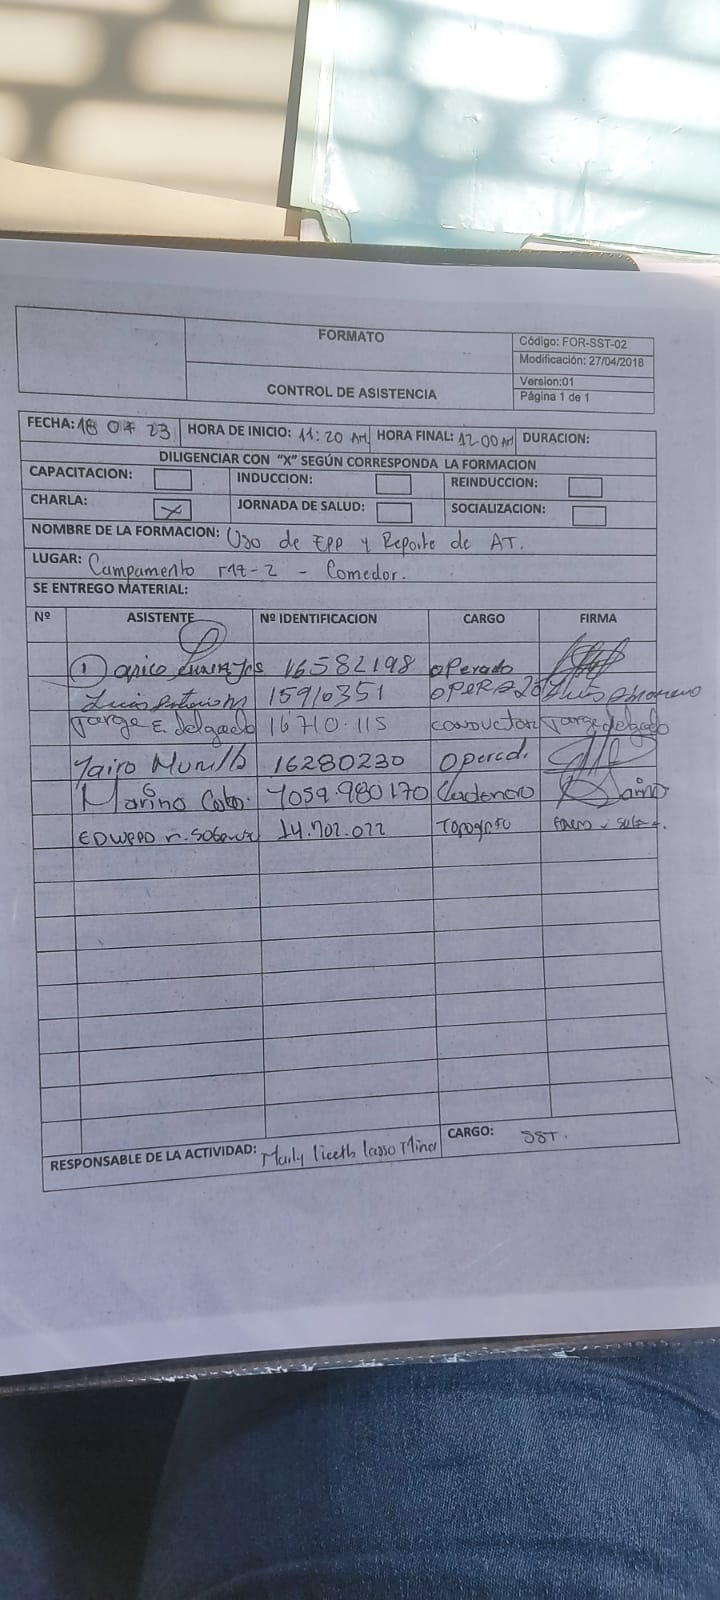 FORMATO
Código: FOR-SST-02
Modificación: 27/04/2018
CONTROL DE ASISTENCIA
Version:01
Página 1 de 1
FECHA: 18 07 23 HORA DE INICIO: 11:20 AM HORA FINAL: 12:00 AM DURACION:
DILIGENCIAR CON "X" SEGÚN CORRESPONDA LA FORMACION
CAPACITACION: INDUCCION: REINDUCCION:
CHARLA: X JORNADA DE SALUD: SOCIALIZACION:
NOMBRE DE LA FORMACION: Uso de EPP y Reporte de AT.
LUGAR: Campamento - Comedor.
SE ENTREGO MATERIAL:
Nº ASISTENTE Nº IDENTIFICACION CARGO FIRMA
16582198 operado
Luis 15910351
Jorge E. delgado 16710.115 conductor Jorge delgado
Jairo Murillo 16280230 Operad.
Marino 1059.980170 Cadenero
EDWARD 14.702.022 Topografo
RESPONSABLE DE LA ACTIVIDAD: Maily liceth lasso Mina CARGO: SST.